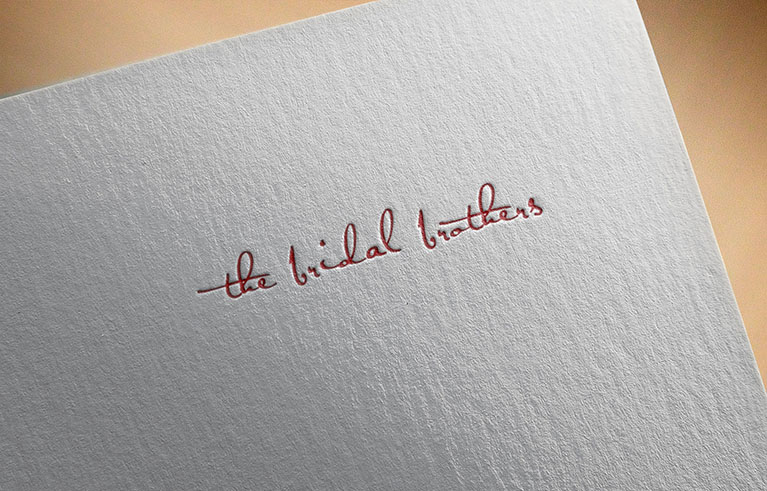 the bridal brothers